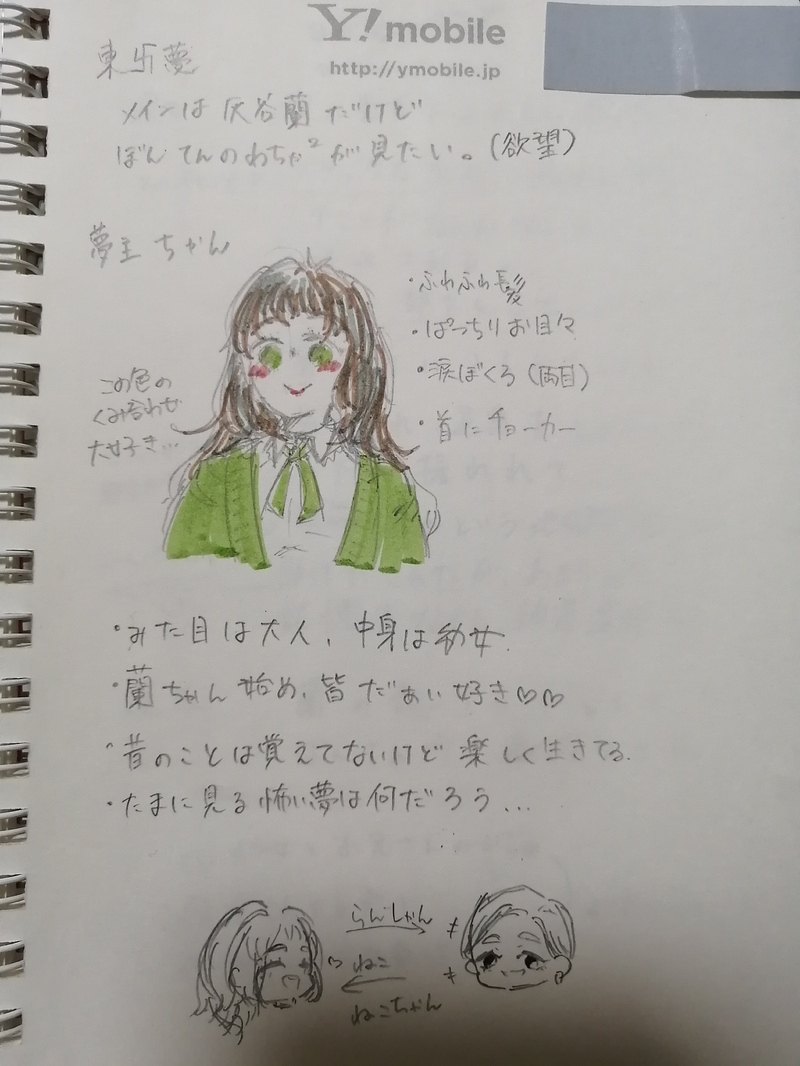 Y!mobile
http://ymobile.jp
東卐夢
メインは灰谷蘭だけど
ぼんてんのわちゃ²が見たい。(欲望)
夢主ちゃん
・ふわふわ髪
・ぱっちりお目々
・涙ぼくろ(両目)
・首にチョーカー
この色の
くみ合わせ
大好き…
・みた目は大人、中身は幼女.
・蘭ちゃん始め、皆だぁい好き♡♡
・昔のことは覚えてないけど楽しく生きてる.
・たまに見る怖い夢は何だろう…
らんしゃん
ねこ
ねこちゃん